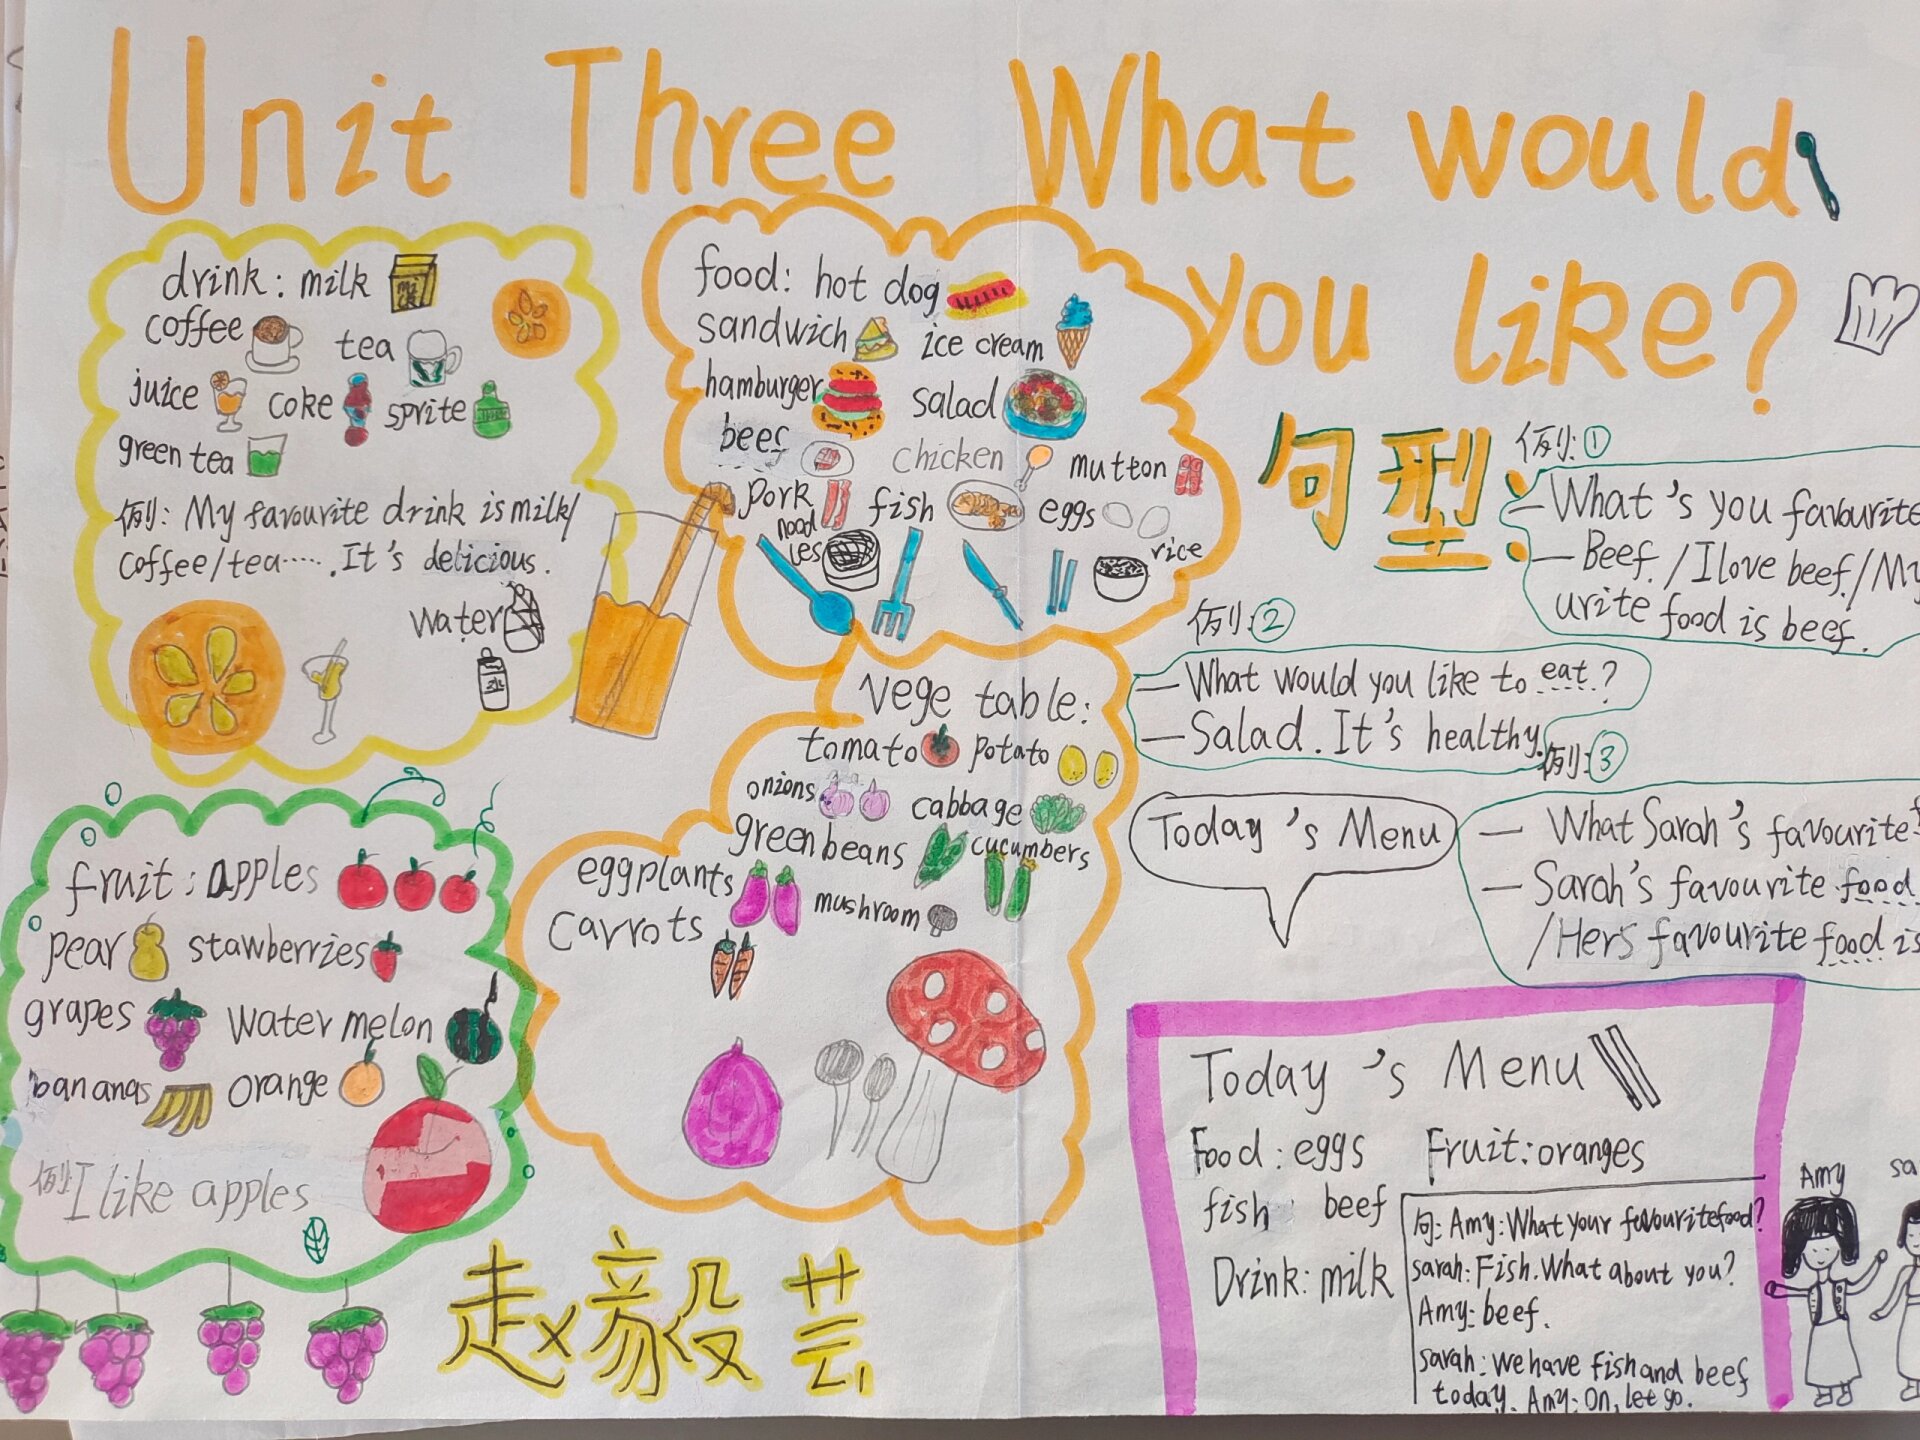 Unit Three What would
you like?
drink: milk
coffee tea
juice coke sprite
green tea
例: My favourite drink is milk/
coffee/tea......It's delicious.
water
水
food: hot dog
sandwich ice cream
hamburger salad
beef chicken mutton
pork fish eggs
nood
les rice
句型:
例:①
—What's you favourite
—Beef./I love beef./My
urite food is beef.
例:②
—What would you like to eat?
—Salad. It's healthy.
例:③
— What Sarah's favourite f
— Sarah's favourite food
/Hers favourite food is
Today's Menu
Vege table:
tomato potato
onions cabbage
green beans cucumbers
eggplants mushroom
carrots
fruit: apples
pear stawberries
grapes water melon
bananas orange
例:I like apples
赵毅芸
Today's Menu
Food: eggs Fruit: oranges
fish beef
Drink: milk
句: Amy: What your favourite food?
sarah: Fish. What about you?
Amy: beef.
sarah: we have fish and beef
today. Amy: On, let go.
Amy sa